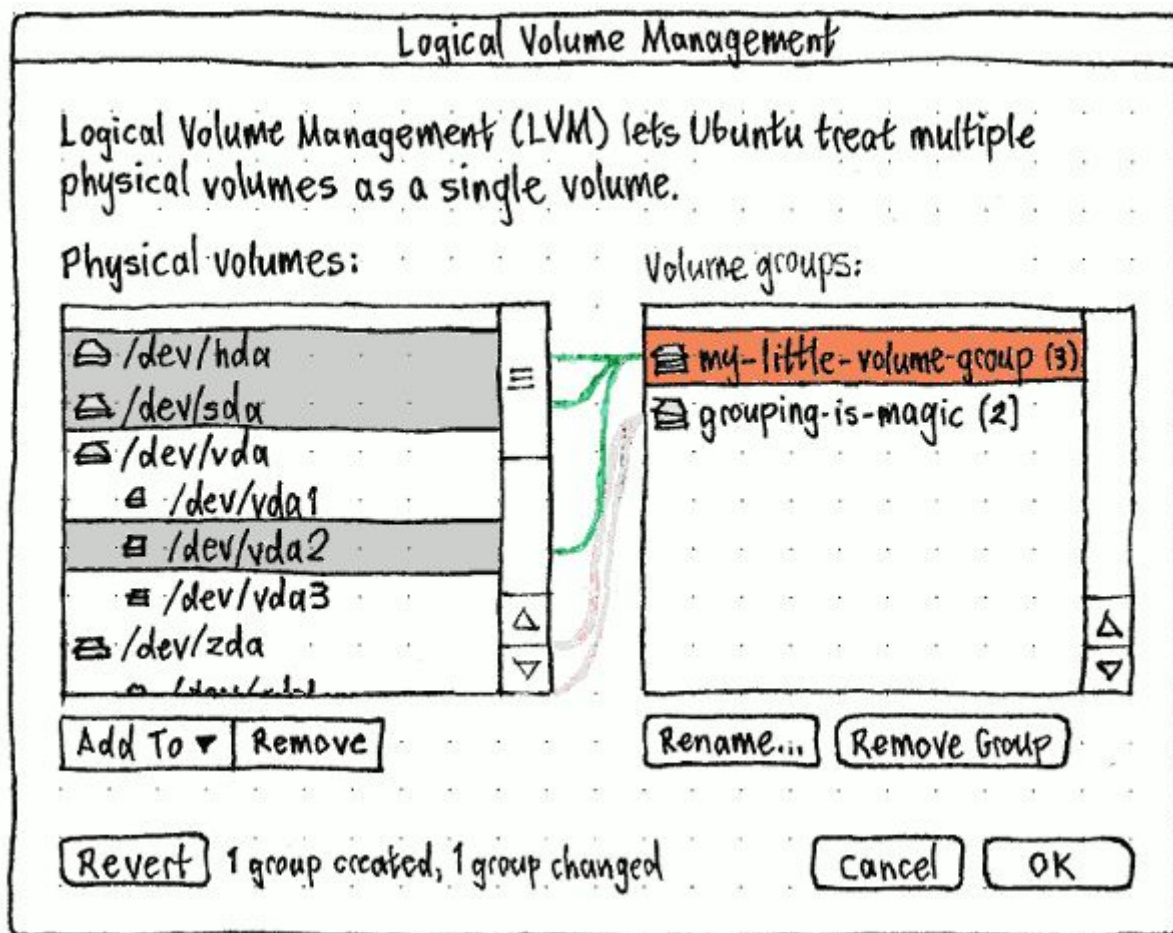 Logical Volume Management
Logical Volume Management (LVM) lets Ubuntu treat multiple
physical volumes as a single volume.
Physical volumes:
/dev/hda
/dev/sda
/dev/vda
/dev/vda1
/dev/vda2
/dev/vda3
/dev/zda
Add To ▾ Remove
Volume groups:
my-little-volume-group (3)
grouping-is-magic (2)
Rename... Remove Group
Revert 1 group created, 1 group changed
Cancel OK